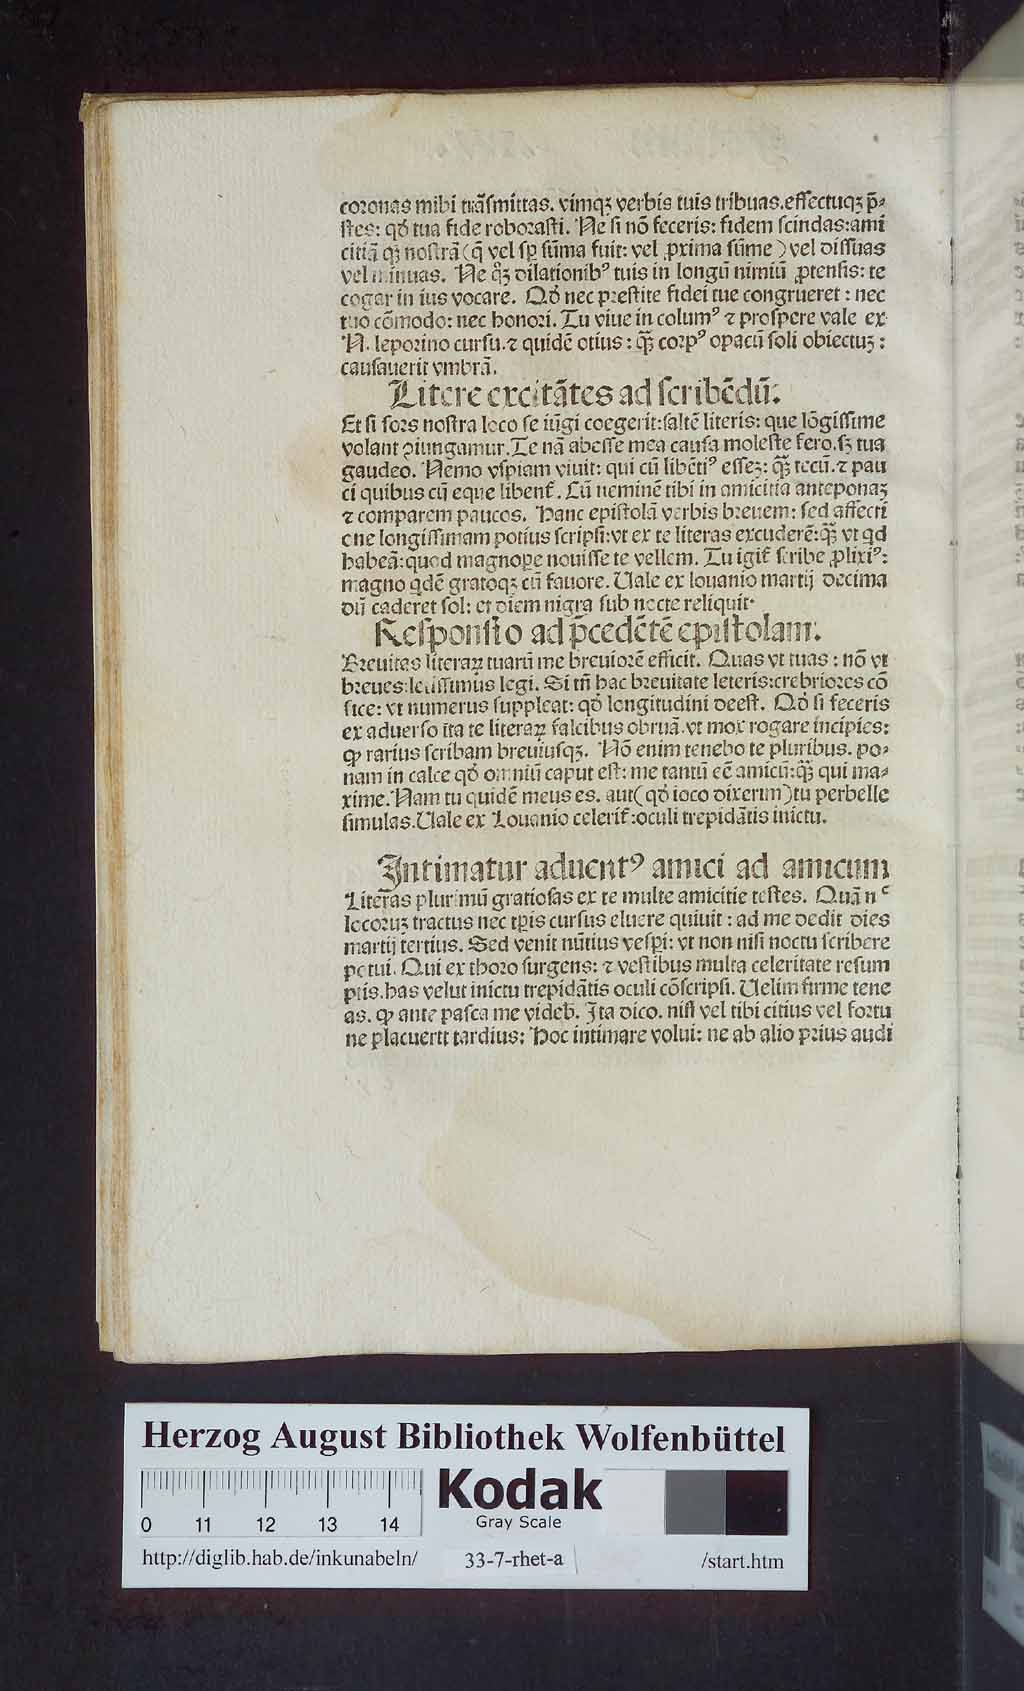 coronas mihi trãſmittas. vimqꝫ verbis tuis tribuas. effectuqꝫ p̄⸗
ſtes: qď tua fide roboraſti. Ne ſi nõ feceris: fidem ſcindas: ami
citiã qꝫ noſtrã (q̄ vel ſꝑ ſũma fuit: vel ꝓxima ſũme) vel diſſuas
vel minuas. Ne qꝫ dilationibꝰ tuis in longũ nimiũ ꝓtenſis: te
cogar in ius vocare. Qď nec preſtite fidei tue congrueret: nec
tuo cõmodo: nec honori. Tu viue in columꝰ ⁊ proſpere vale ex
N. leporino curſu. ⁊ quidẽ otius: qꝫ̃ corpꝰ opacũ ſoli obiectuꝫ:
cauſauerit vmbrã.
Litere excitãtes ad ſcribẽdũ.
Et ſi ſors noſtra loco ſe iũgi coegerit: ſaltẽ literis: que lõgiſſime
volant ꝯiungamur. Te nã abeſſe mea cauſa moleſte fero. ſꝫ tua
gaudeo. Nemo vſpiam viuit: qui cũ libẽtiꝰ eſſeꝫ: qꝫ̃ tecũ. ⁊ pau
ci quibus cũ eque libent̃. Cũ neminẽ tibi in amicitia anteponaꝫ
⁊ comparem paucos. Hanc epiſtolã verbis breuem: ſed affecti
one longiſſimam potius ſcripſi: vt ex te literas excuderẽ: qꝫ̃ vt qd
habeã: quod magnoꝑe nouiſſe te vellem. Tu igit̃ ſcribe ꝓlixiꝰ:
magno qdẽ gratoqꝫ cũ fauore. Uale ex louanio martij decima
dũ caderet ſol: et diem nigra ſub nocte reliquit.
Reſponſio ad p̄cedẽtẽ epiſtolam.
Breuitas literaꝝ tuarũ me breuiorẽ efficit. Quas vt tuas: nõ vt
breues: letiſſimus legi. Si tñ hac breuitate leteris: crebriores cõ
fice: vt numerus ſuppleat: qď longitudini deeſt. Qď ſi feceris
ex aduerſo ita te literaꝝ falcibus obruã. vt mox rogare incipies:
ꝙ rarius ſcribam breuiuſqꝫ. Nõ enim tenebo te pluribus. po⸗
nam in calce qď omniũ caput eſt: me tantũ eẽ amicũ: qꝫ̃ qui ma⸗
xime. Nam tu quidẽ meus es. aut (qď ioco dixerim) tu perbelle
ſimulas. Uale ex Louanio celerit̃: oculi trepidãtis inictu.
Intimatur aduentꝰ amici ad amicum
Literas plurimũ gratioſas ex te multe amicitie teſtes. Quã nᶜ
locoruꝫ tractus nec tꝑis curſus eluere quiuit: ad me dedit dies
martij tertius. Sed venit nũtius veſpi: vt non niſi noctu ſcribere
potui. Qui ex thoro ſurgens: ⁊ veſtibus multa celeritate reſum
ptis. has velut inictu trepidãtis oculi cõſcripſi. Uelim firme tene
as. ꝙ ante paſca me videb̃. Ita dico. niſi vel tibi citius vel fortu
ne placuerit tardius: Hoc intimare volui: ne ab alio prius audi
Herzog August Bibliothek Wolfenbüttel
0 11 12 13 14
Kodak
Gray Scale
http://diglib.hab.de/inkunabeln/ 33-7-rhet-a /start.htm